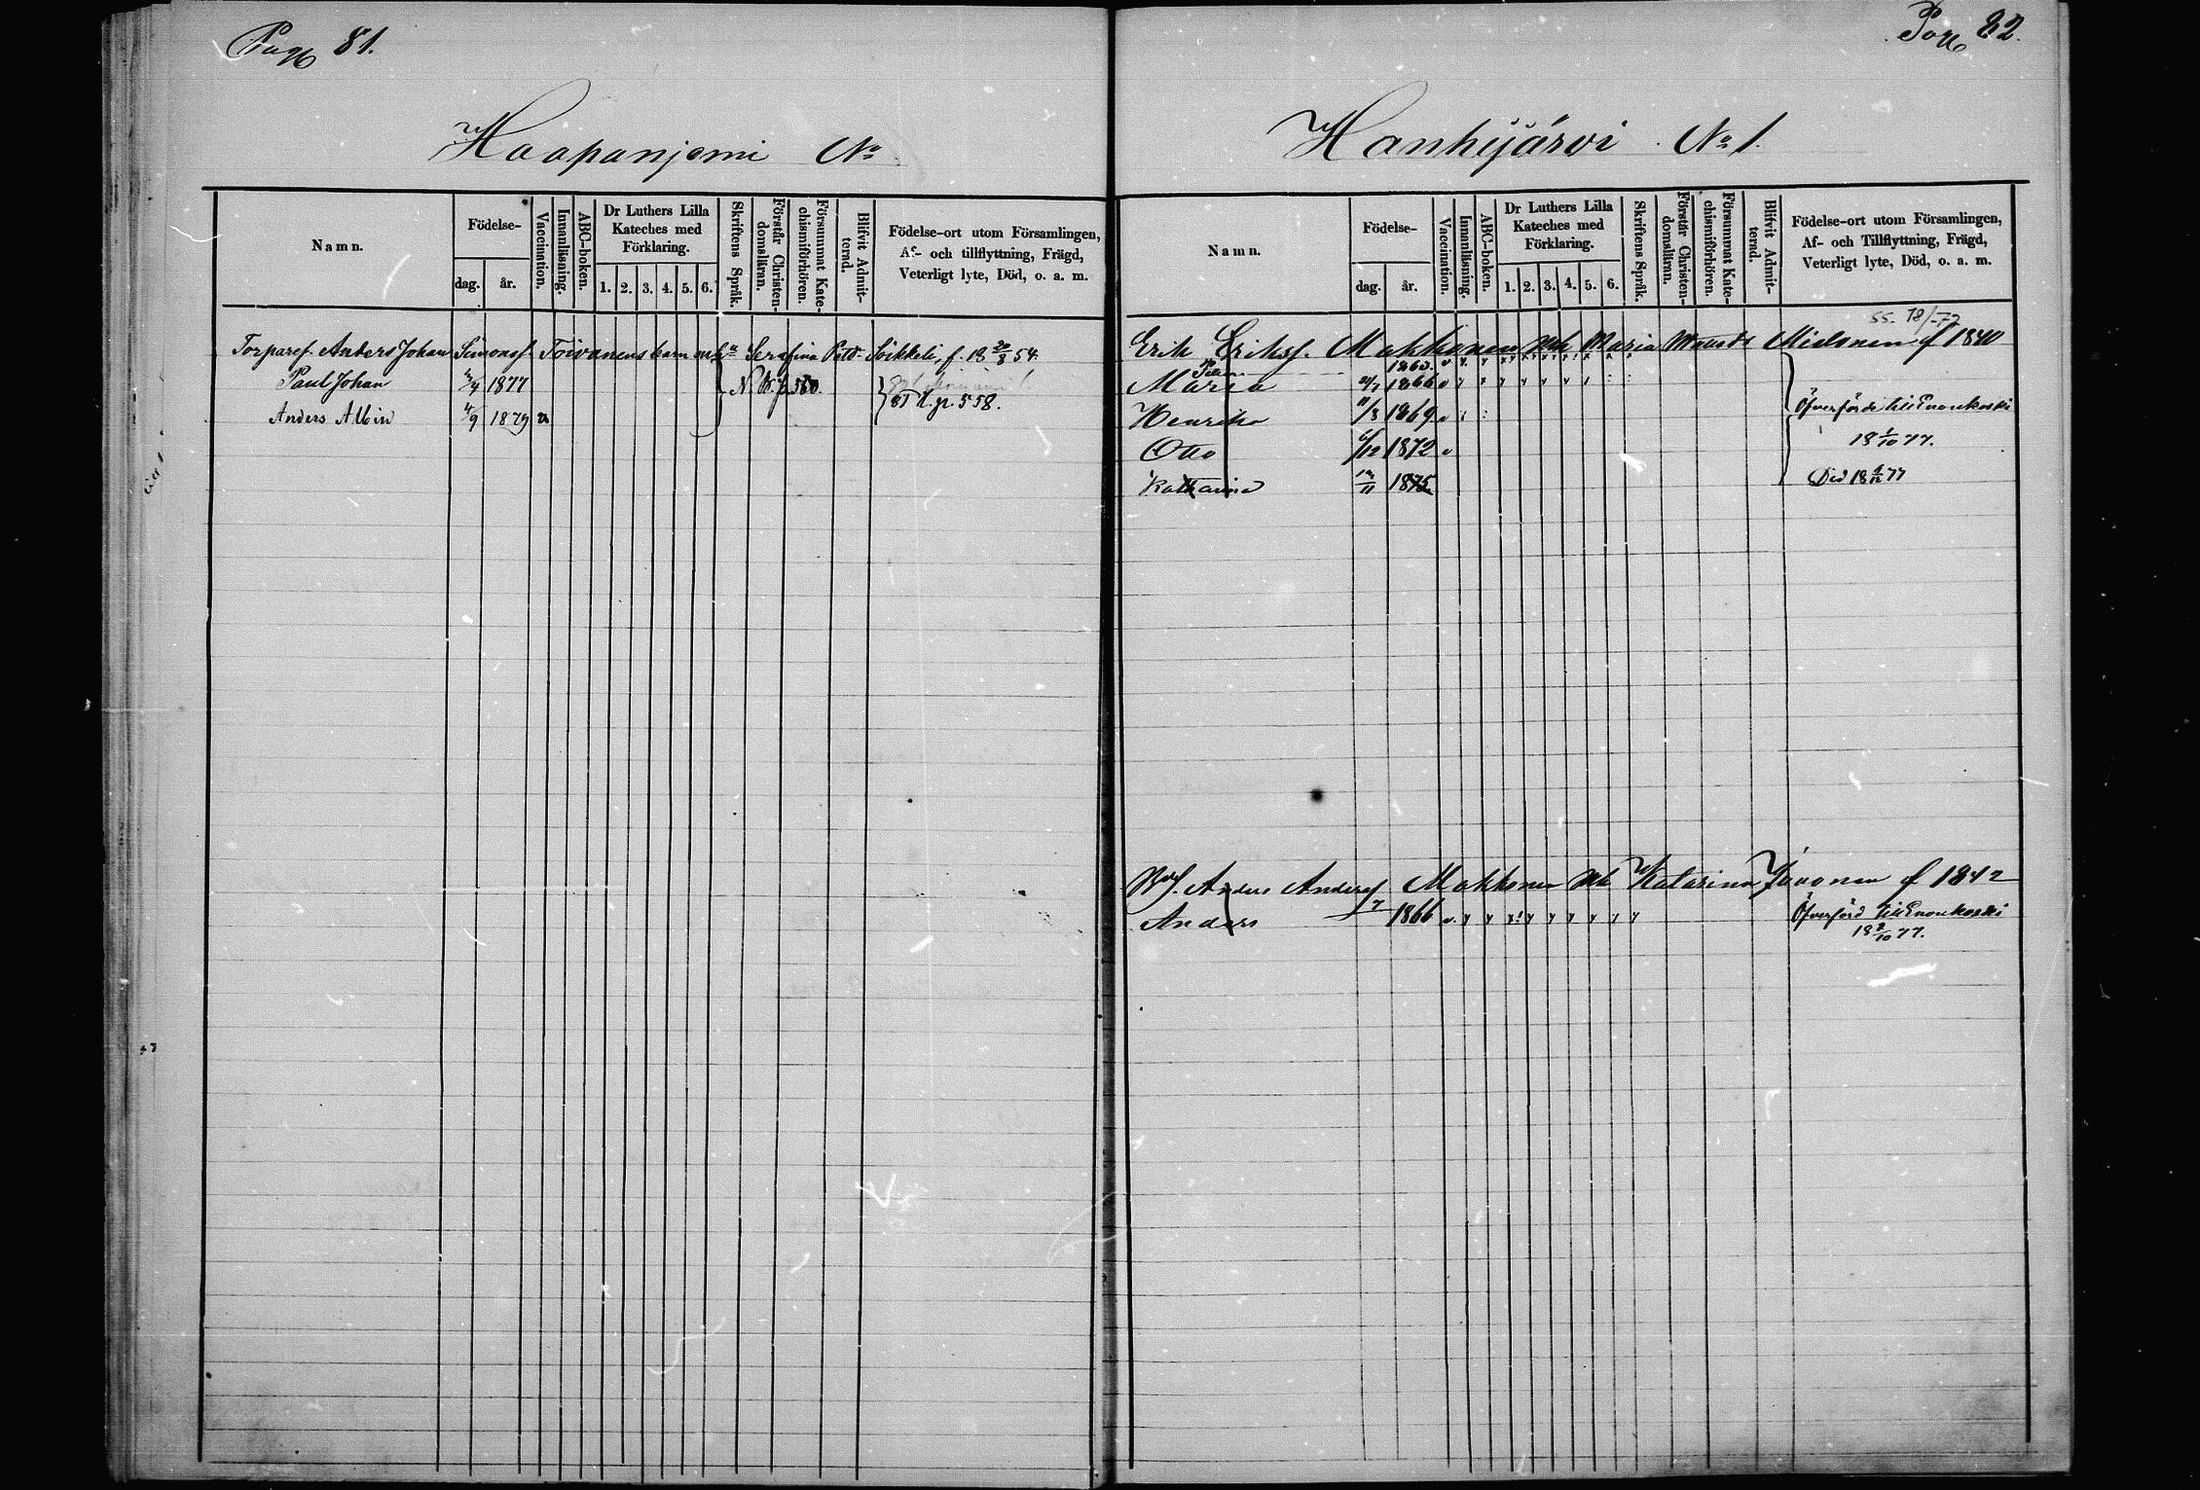 Pag 81.
Haapaniemi No
Namn.
Födelse-
dag.
år.
Vaccination.
Innanläsning.
ABC-boken.
Dr Luthers Lilla
Kateches med
Förklaring.
1. 2. 3. 4. 5. 6.
Skriftens Språk.
Förstår Christen-
domsläran.
Försummat Kate-
chismiförhören.
Blifvit Admit-
terad.
Födelse-ort utom Församlingen,
Af- och tillflyttning, Frägd,
Veterligt lyte, Död, o. a. m.
Torparef. Anders Johan Simonsf. Toivanens barn m h:u Serafina Petd. f. 18 20/8 54.
Paul Johan 1877 N. B. p. 560.
p. 558.
Anders Albin 4/9 1879 v
Pag 82.
Hanhijärvi No 1.
Namn.
Födelse-
dag.
år.
Vaccination.
Innanläsning.
ABC-boken.
Dr Luthers Lilla
Kateches med
Förklaring.
1. 2. 3. 4. 5. 6.
Skriftens Språk.
Förstår Christen-
domsläran.
Försummat Kate-
chismiförhören.
Blifvit Admit-
terad.
Födelse-ort utom Församlingen,
Af- och Tillflyttning, Frägd,
Veterligt lyte, Död, o. a. m.
Erik Eriksf. Makkonen Mh Maria Mielonen f 1840
1863. v
Maria 1866 v
Henrika 11/3 1869 v Öfverförde till Enonkoski
Otto 1872 v 18 1/10 77.
Katharina 1875 Död 18 77
Anders Andersf Makkonen Mh Katarina f 1842
Anders 1866 v. Öfverförd till Enonkoski
18 /10 77.